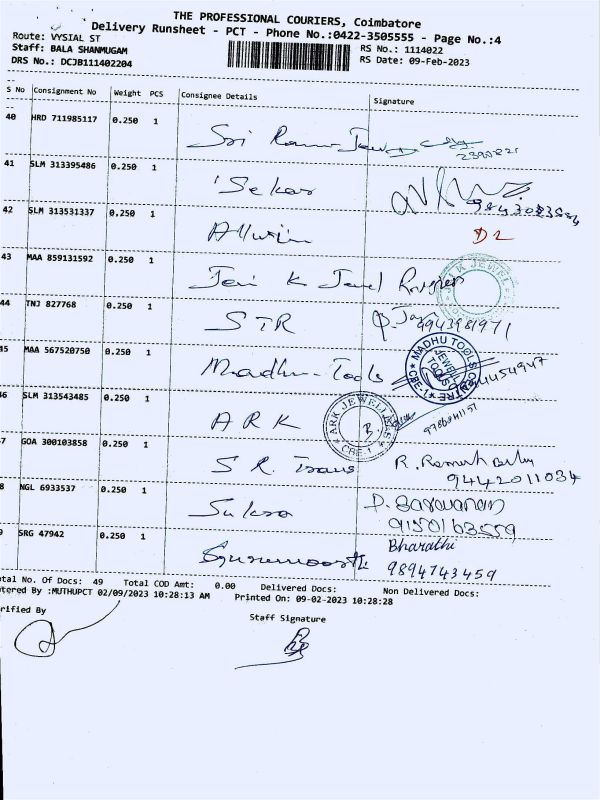 THE PROFESSIONAL COURIERS, Coimbatore
Delivery Runsheet - PCT - Phone No.:0422-3505555 - Page No.:4
Route: VYSIAL ST
Staff: BALA SHANMUGAM
DRS No.: DCJB111402204
RS No.: 1114022
RS Date: 09-Feb-2023
S No Consignment No Weight PCS Consignee Details Signature
40 HRD 711985117 0.250 1 Sri Ram
41 SLM 313395486 0.250 1 Sekar
42 SLM 313531337 0.250 1 D2
43 MAA 859131592 0.250 1 Jai K Jewel
44 TNJ 827768 0.250 1 STR 9943981971
45 MAA 567520750 0.250 1 Madhu Tools
MADHU TOOLS CENTRE JEWELLERY TOOLS CBE-1
46 SLM 313543485 0.250 1 ARK
ARK JEWELLERS CBE-1
47 GOA 300103858 0.250 1 S R. Trans R. Ramesh Babu
9442011034
8 NGL 6933537 0.250 1 Sukra D. Saravanan
9150163559
9 SRG 47942 0.250 1 Gurumoorthi Bharathi
9894743459
otal No. Of Docs: 49 Total COD Amt: 0.00 Delivered Docs: Non Delivered Docs:
ntered By :MUTHUPCT 02/09/2023 10:28:13 AM Printed On: 09-02-2023 10:28:28
erified By
Staff Signature